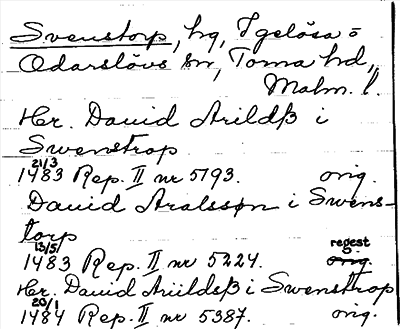 Svenstorp, hg, Igelösa o
Odarslövs sn, Torna hd,
Malm. l.
Hr. Dauid Arildß i
Swenstrop
21/3
1483 Rep. II nr 5193. orig.
Dauid Aralssøn i Swens-
torp
13/5 regest
1483 Rep. II nr 5224. orig.
Hr. Dauid Ariildsß i Swenstrop
20/1
1484 Rep. II nr 5387. orig.